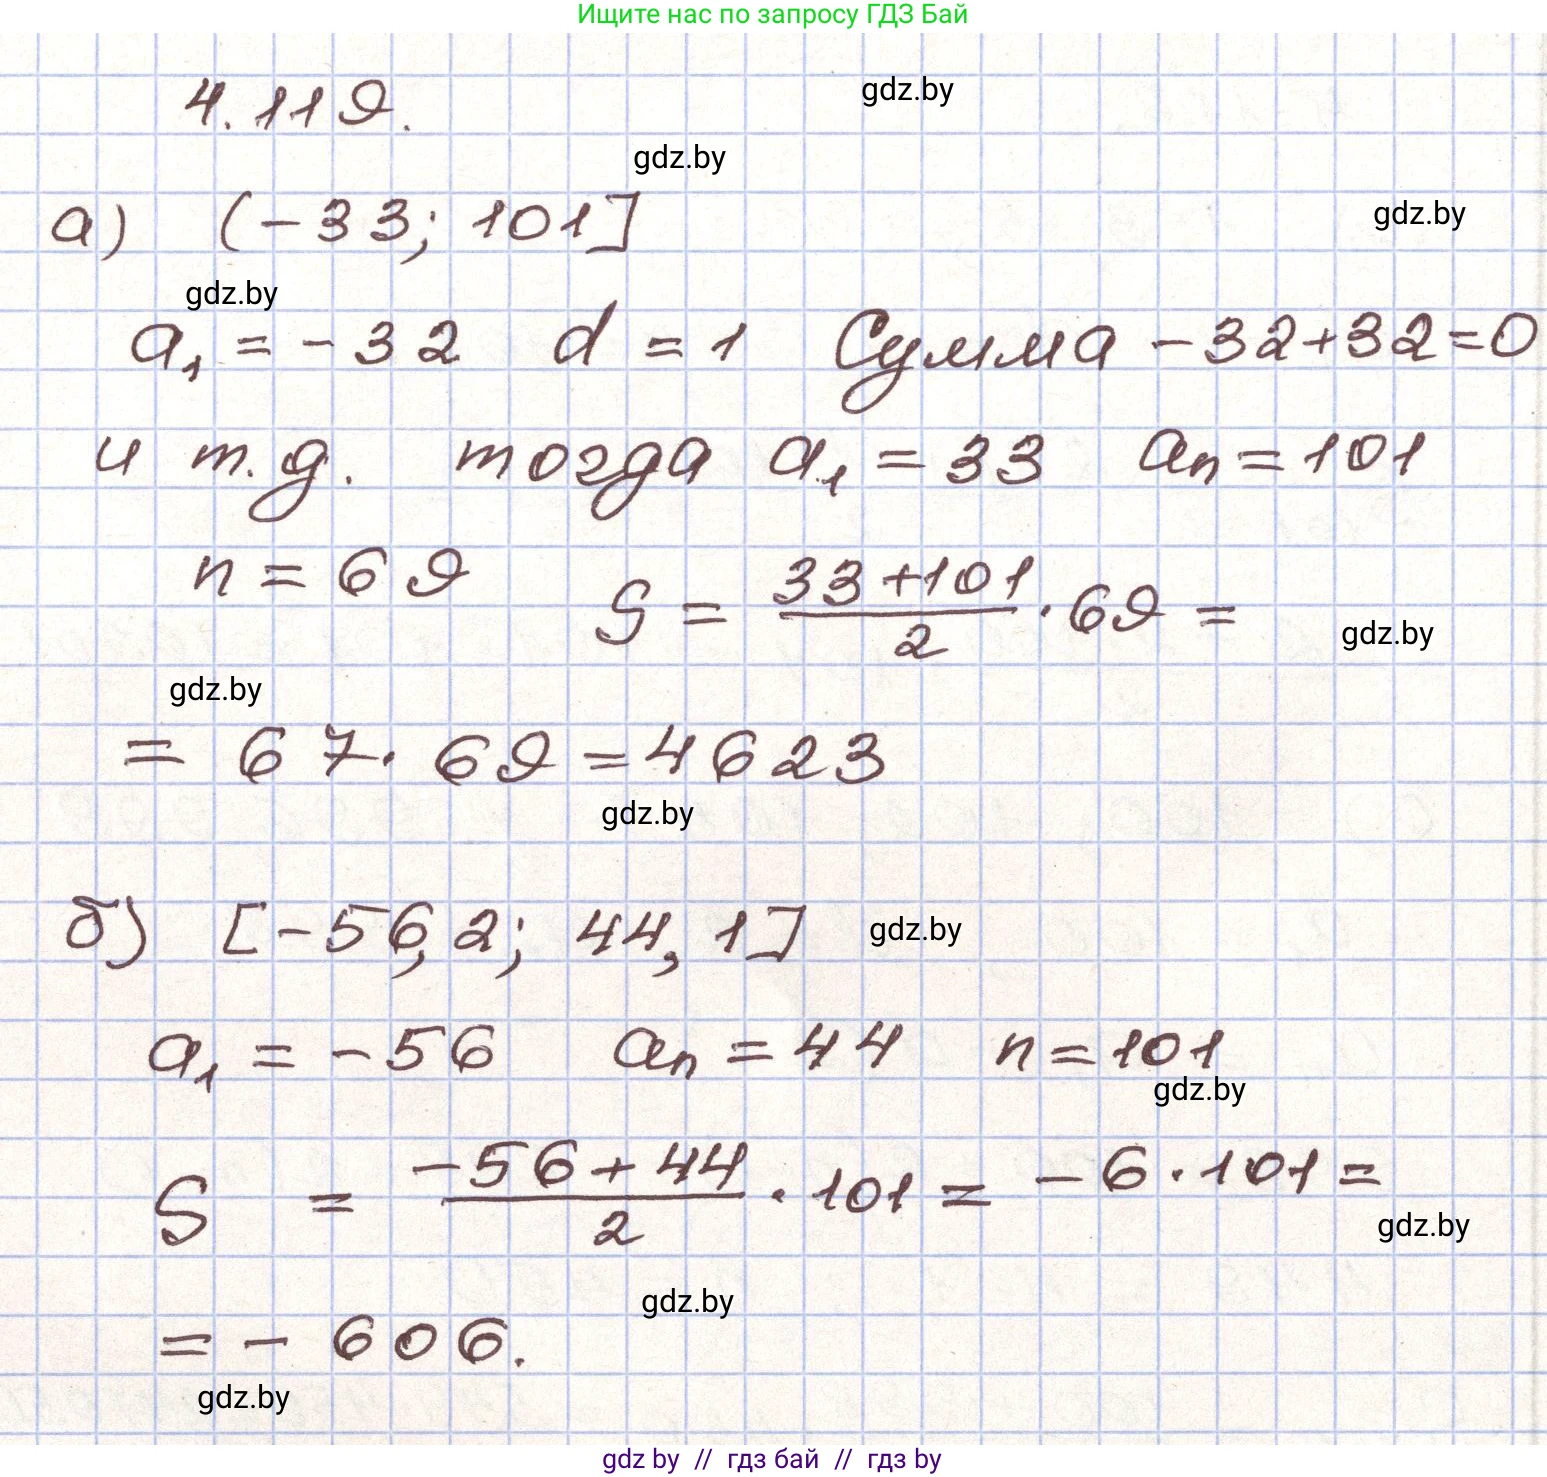 Ищите нас по запросу ГДЗ Бай
4.119.
gdz.by
gdz.by
а) (-33; 101]
gdz.by
gdz.by
a₁ = -32 d = 1 Сумма -32+32=0
и т.д. тогда a₁ = 33 aₙ = 101
n = 69 S = (33+101)/2 · 69 =
gdz.by
gdz.by
= 67 · 69 = 4623
gdz.by
б) [-56,2; 44,1]
gdz.by
a₁ = -56 aₙ = 44 n = 101
gdz.by
S = (-56+44)/2 · 101 = -6 · 101 =
gdz.by
gdz.by
= -606.
gdz.by
gdz by // гдз бай // гдз by